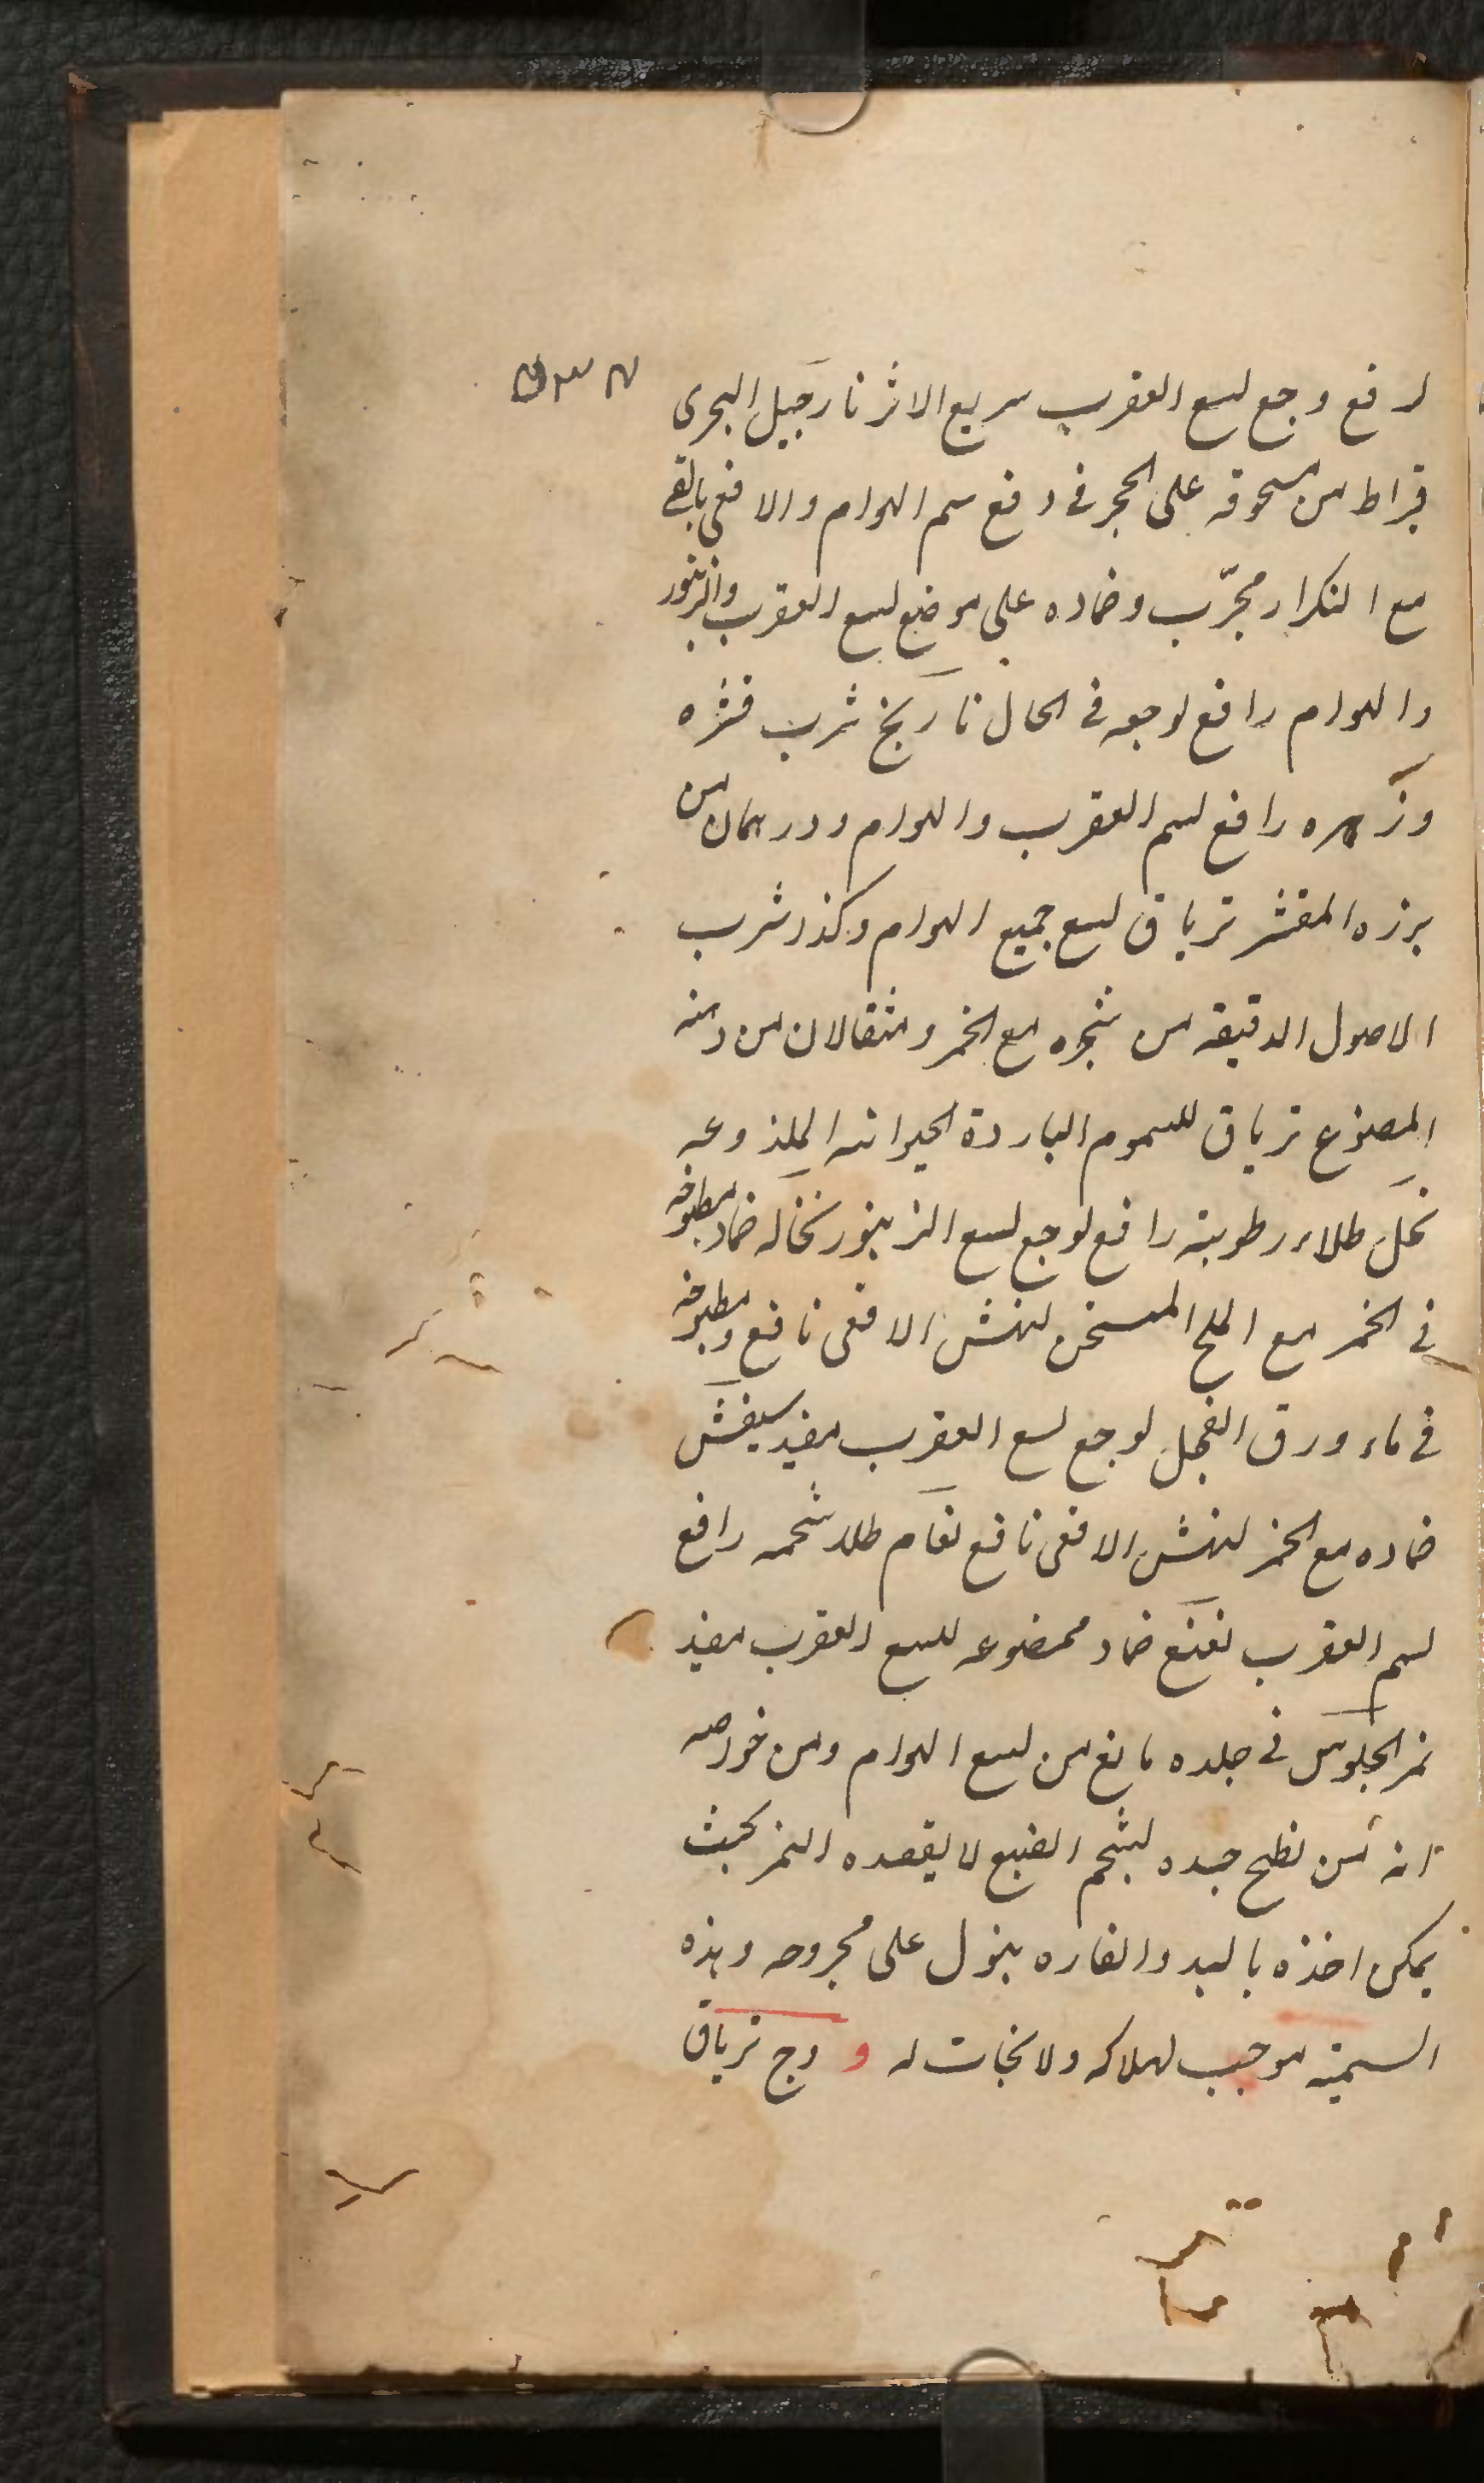 لدفع وجع لسع العقرب سريع الاثر نارجيل البحرى
قيراط من مسحوقه على الحجر فى دفع سم الهوام والافعى بالقى
مع التكرار مجرّب وضماده على موضع لسع العقرب والزنبور
والهوام رافع لوجعه فى الحال نارنج شرب قشره
وزهره رافع لسم العقرب والهوام ودرهمان من
بزره المقشر ترياق لسع جميع الهوام وكذا شرب
الاصول الدقيقه من شجره مع الخمر ومثقالان من دهنه
المصنوع ترياق للسموم الباردة الحيوانيه الملذوعه
نحل طلاء رطوبته رافع لوجع لسع الزنبور نخاله ضماد مطبوخه
فى الخمر مع الملح المسخن لنهش الافعى نافع ومطبوخه
فى ماء ورق الفجل لوجع لسع العقرب مفيد سيفش
ضماده مع الخمر لنهش الافعى نافع نعام طلاء شحمه رافع
لسم العقرب نعنع ضماد ممضوغه للسع العقرب مفيد
نمر الجلوس فى جلده مانع من لسع الهوام ومن خواصه
انه من يطلى جسده بشحم الضبع لا يقصده النمر بحيث
يمكن اخذه باليد والفاره يبول على مجروحه وهذه
السميّه موجب لهلاكه ولا نجات له و وج ترياق